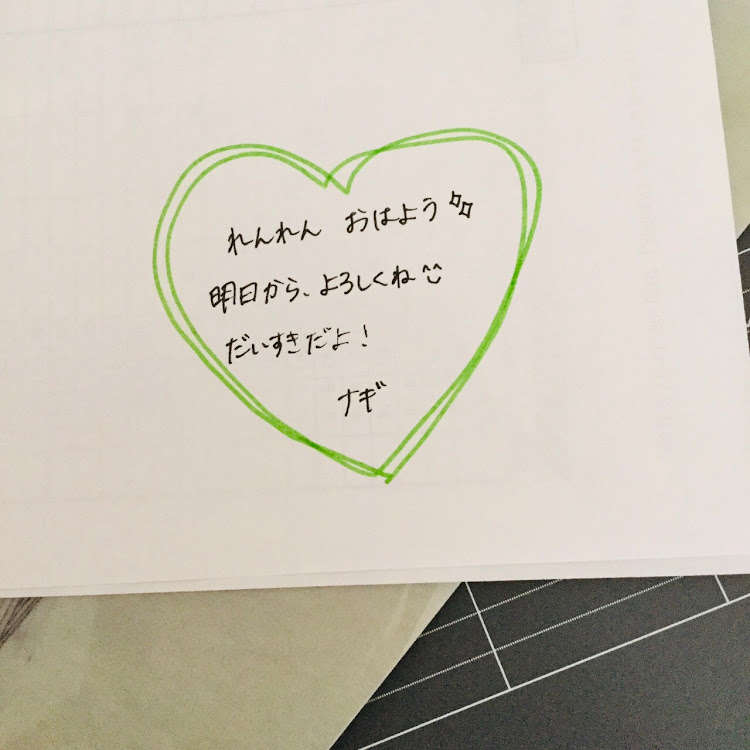 れんれん おはよう
明日から、よろしくね^^
だいすきだよ!
ナギ